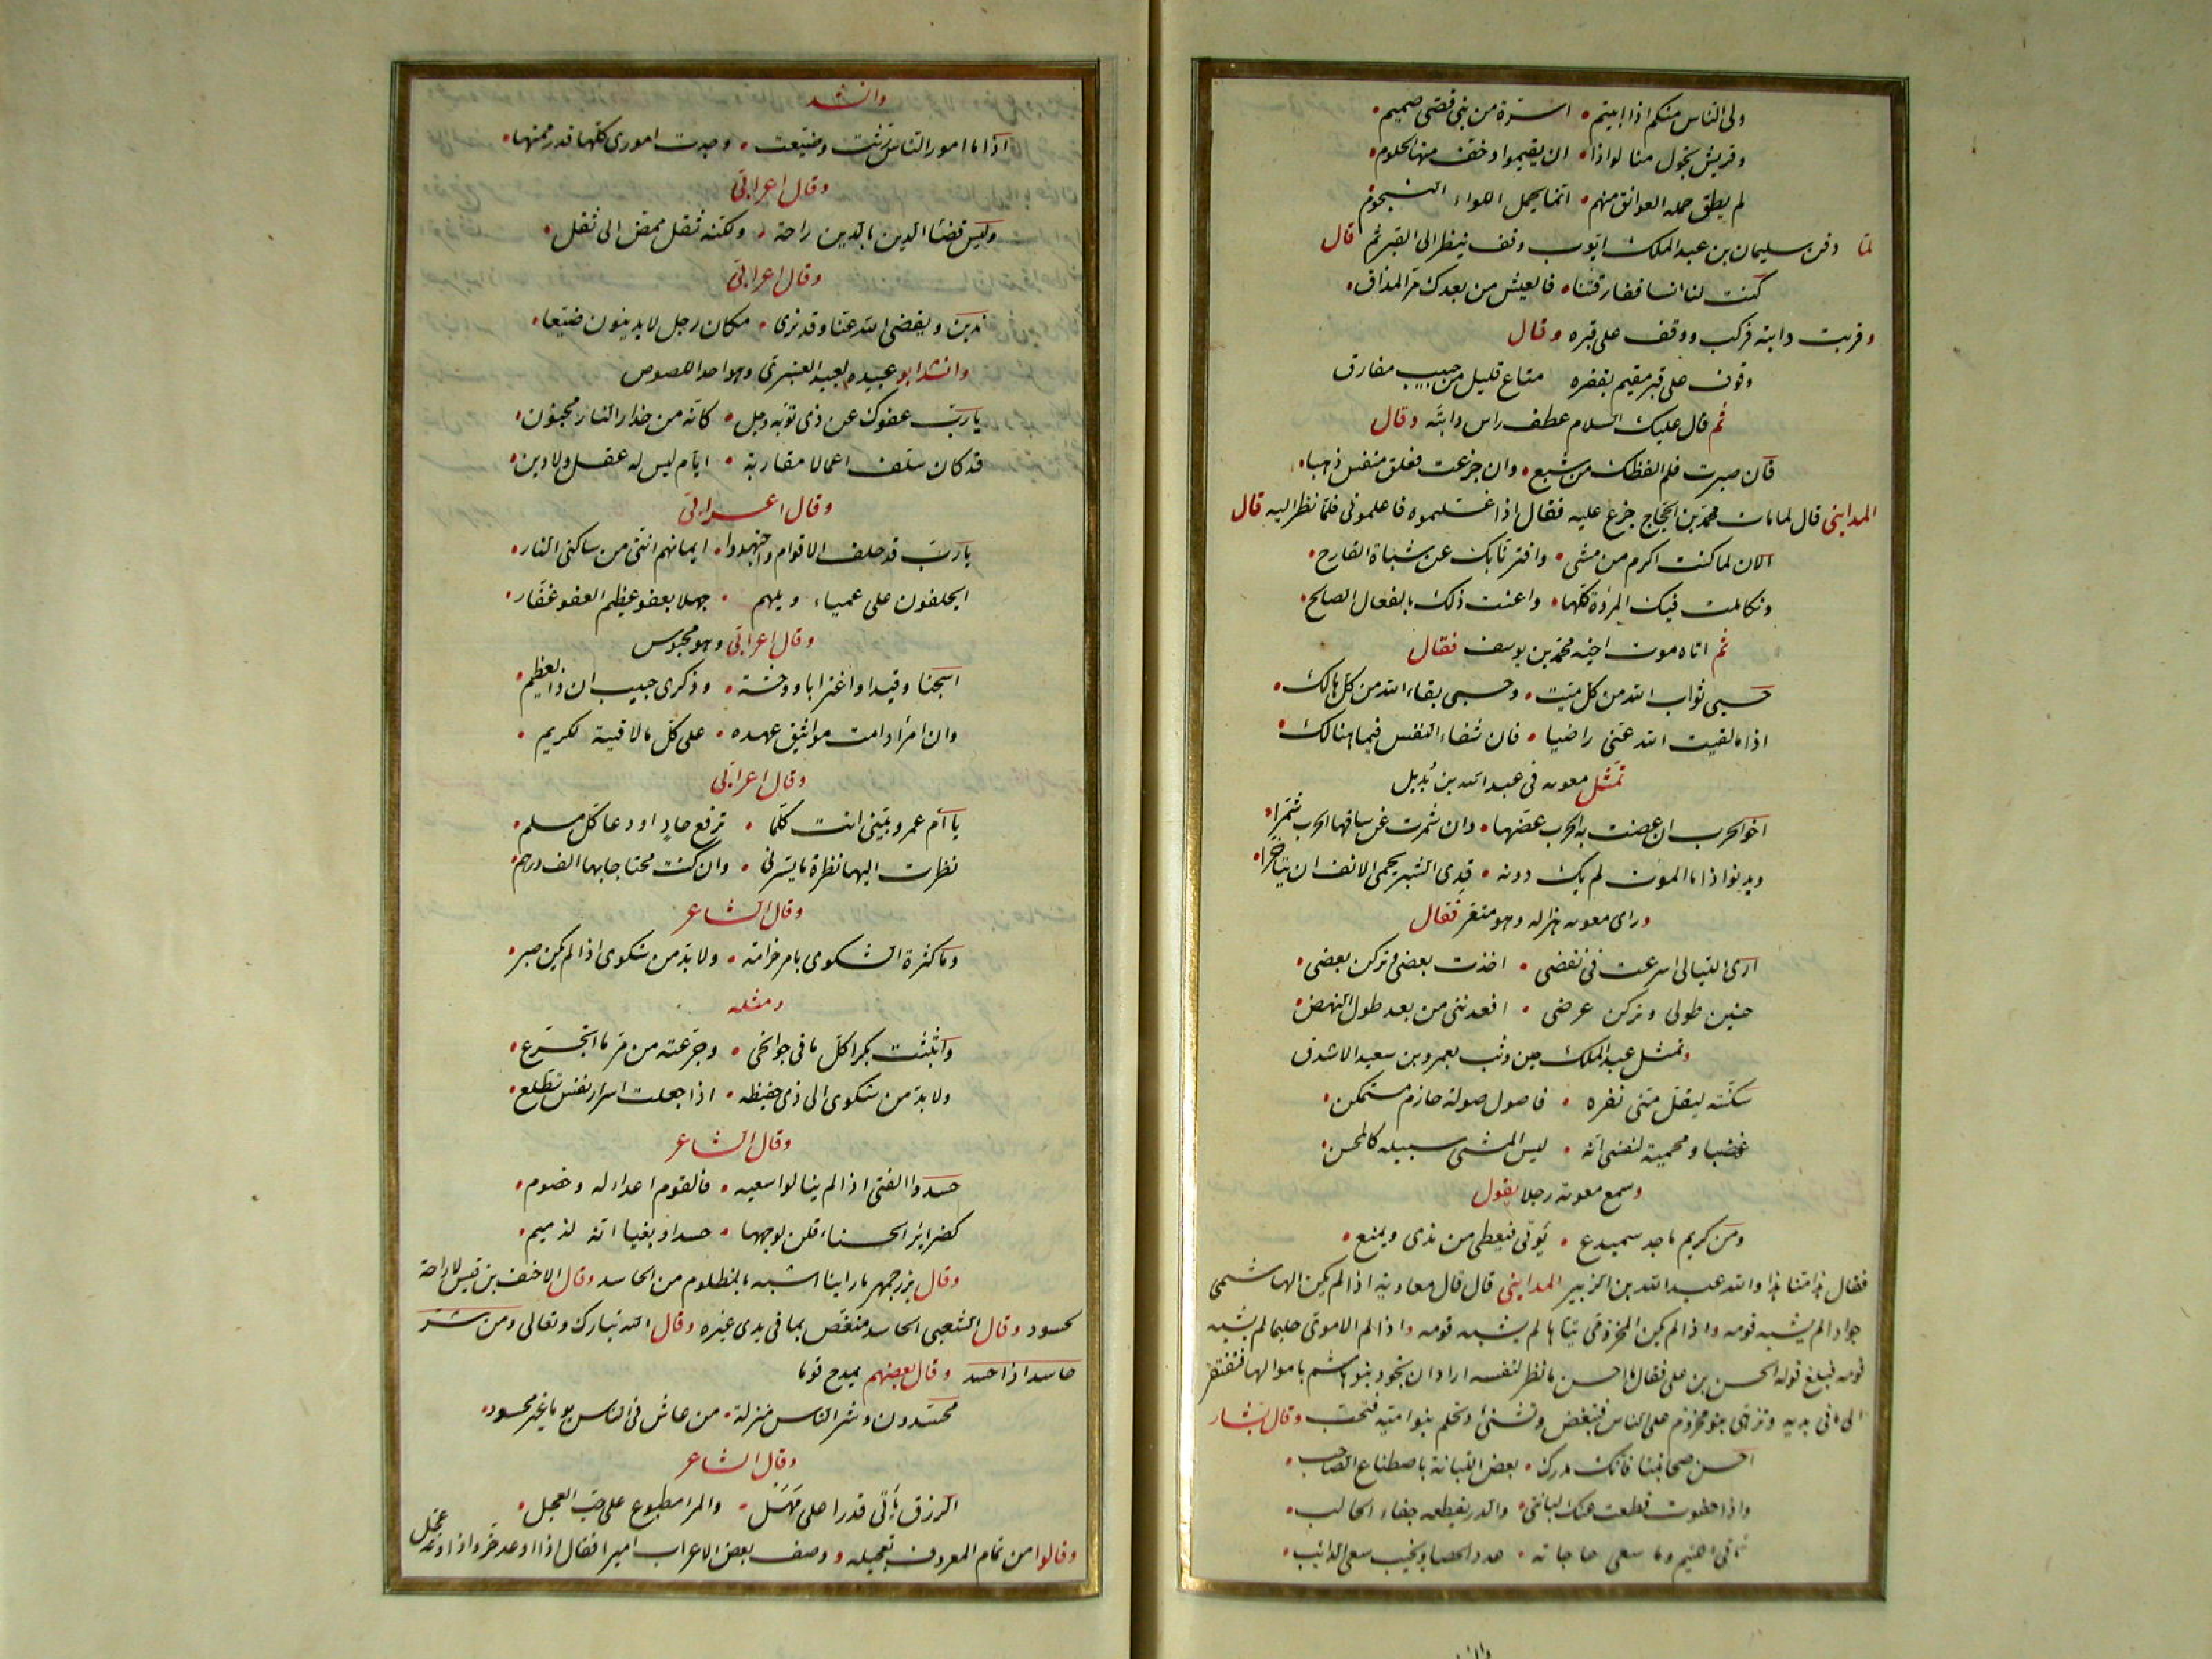 ولى الناس منكم اذا ابيتم • اسرة من بنى قصى صميم •
وقريش تجول منا لواذا • ان يقيموا وخف منها الحلوم •
لم يطق حمله العواتق منهم • انما يحمل اللواء النجوم
لما دفن سليمان بن عبد الملك ايوب وقف ينظر الى القبر ثم قال
كنت لنا انسا ففارقتنا • فالعيش من بعدك مر المذاق •
وقربت دابته فركب ووقف على قبره وقال
وقوف على قبر مقيم بقفره متاع قليل من حبيب مفارق
ثم قال عليك السلام عطف راس دابته وقال
فان صبرت فلم الفظك من شبع • وان جزعت فعلق منفس ذهبا •
المداينى قال لما مات محمد بن الحجاج جزع عليه فقال اذا غسلتموه فاعلمونى فلما نظر اليه قال
الان لما كنت اكرم من مشى • وافتر نابك عن شباة القارح •
وتكاملت فيك المروة كلها • واعنت ذلك بالفعال الصالح •
ثم اتاه موت اخيه محمد بن يوسف فقال
حسبى ثواب الله من كل ميت • وحسبى بقاء الله من كل هالك •
اذا ما لقيت الله عنى راضيا • فان شفاء النفس فيما هنالك •
تمثل معوية فى عبد الله بن بديل
اخو الحرب ان عضت به الحرب عضها • وان شمرت عن ساقها الحرب شمرا •
ويدنو اذا ما الموت لم يك دونه • قدى الشبر يحمى الانف ان يتاخرا •
وراى معوية هزاله وهو متعر فقال
ارى الليالى اسرعت فى نقضى • اخذت بعضى وتركن بعضى •
حنين طولى وتركن عرضى • اقعدننى من بعد طول النهض •
وتمثل عبد الملك حين وثب بعمرو بن سعيد الاشدق
سكنته ليقل منى نفره • فاصول صولة حازم مستمكن •
غضبا ومحمية لنفسى انه • ليس المسئ سبيله كالمحسن •
وسمع معوية رجلا يقول
ومن كريم ماجد سميدع • يؤتى فيعطى من ندى ويمنع •
فقال هذا منا هذا والله عبد الله بن الزبير المداينى قال قال معاوية اذا لم يكن الهاشمى
جوادا لم يشبه قومه واذا لم يكن المخزومى تياها لم يشبه قومه واذا لم الاموى حليما لم يشبه
قومه فبلغ قوله الحسن بن على فقال ما احسن ما نظر لنفسه اراد ان تجود بنو هاشم باموالها فتفتقر
الى ما فى يديه وتزهى بنو مخزوم على الناس فتبغض وتشنئ وتحلم بنو امية فتحب وقال بشار
احسن صحابتنا فانك مدرك • بعض اللبانة باصطناع الصاحب •
واذا جفوت قطعت عنك لبانتى • والدر يقطعه جفاء الحالب •
تاتى اللئيم وما سعى حاجاته • عدد الحصا ويخيب سعى الدائب •
وانشد
اذا ما امور الناس رثت وضيعت • وجدت امورى كلها قد رممتها •
وقال اعرابى
وليس قضاء الدين بالدين راحة • ولكنه ثقل ممض الى ثقل •
وقال اعرابى
ندين ويقضى الله عنا وقد نرى • مكان رجل لا يدينون ضيعا •
وانشد ابو عبيده لعبيد العنبرى وهو احد اللصوص
يا رب عفوك عن ذى توبة وجل • كانه من حذار النار مجنون •
قد كان سلف اعمالا مقاربة • ايام ليس له عقل ولا دين •
وقال اعرابى
يا رب قد حلف الاقوام واجتهدوا • ايمانهم اننى من ساكنى النار •
ايحلفون على عمياء ويلهم • جهلا بعفو عظيم العفو غفار •
وقال اعرابى وهو محبوس
اسجنا وقيدا واغترابا ووحشة • وذكرى حبيب ان ذا لعظيم •
وان امرأ دامت مواثيق عهده • على كل ما لاقيته لكريم •
وقال اعرابى
يا ام عمرو بينى انت كلما • ترفع حاد او دعا كل مسلم •
نظرت اليها نظرة ما يسرنى • وان كنت محتاجا بها الف درهم •
وقال الشاعر
وما كثرة الشكوى بامر حزامة • ولا بد من شكوى اذا لم يكن صبر •
ومثله
وابثثت بكرا كل ما فى جوانحى • وجرعته من مر ما اتجرع •
ولا بد من شكوى الى ذى حفيظه • اذا جعلت اسرار نفس تطلع •
وقال الشاعر
حسدوا الفتى اذ لم ينالوا سعيه • فالقوم اعداء له وخصوم •
كضراير الحسناء قلن لوجهها • حسدا وبغيا انه لذميم •
وقال بزرجمهر ما راينا اشبه بالمظلوم من الحاسد وقال الاحنف بن قيس لا راحة
لحسود وقال الشعبى الحاسد منغص بما فى يدى غيره وقال الله تبارك وتعالى ومن شر
حاسد اذا حسد وقال بعضهم يمدح قوما
محسدون وشر الناس منزلة • من عاش فى الناس يوما غير محسود •
وقال الشاعر
الرزق يأتى قدرا على مهل • والمرا مطبوع على حب العجل •
وقالوا من تمام المعروف تعجيله ووصف بعض الاعراب اميرا فقال اذا اوعد خر واذا وعد عجل